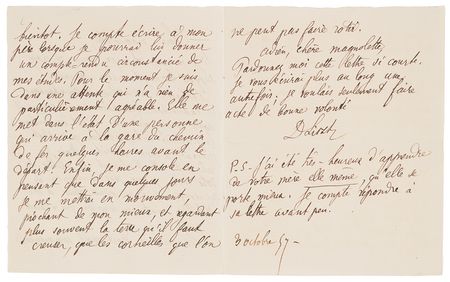 bientôt. Je compte écrire à mon
père lorsque je pourrai lui donner
un compte-rendu circonstancié de
mes études. Pour le moment je suis
dans une attente qui n'a rien de
particulièrement agréable. Elle me
met dans l'état d'une personne
qui arrive à la gare du chemin
de fer quelques heures avant le
départ! Enfin, je me console en
pensant que dans quelques jours
je me mettrai en mouvement,
piochant de mon mieux, et regardant
plus souvent la terre qu'il faut
creuser, que les corneilles que l'on
ne peut pas faire rôtir.
Adieu, chère magnolette,
Pardonnez moi cette lettre si courte.
Je vous écrirai plus au long une
autre fois. Je voulais seulement faire
acte de bonne volonté
D Liszt
P.-S- J'ai été très-heureuse d'apprendre
de votre mère elle même, qu'elle se
porte mieux. Je compte répondre à
sa lettre avant peu.
3 octobre 57-